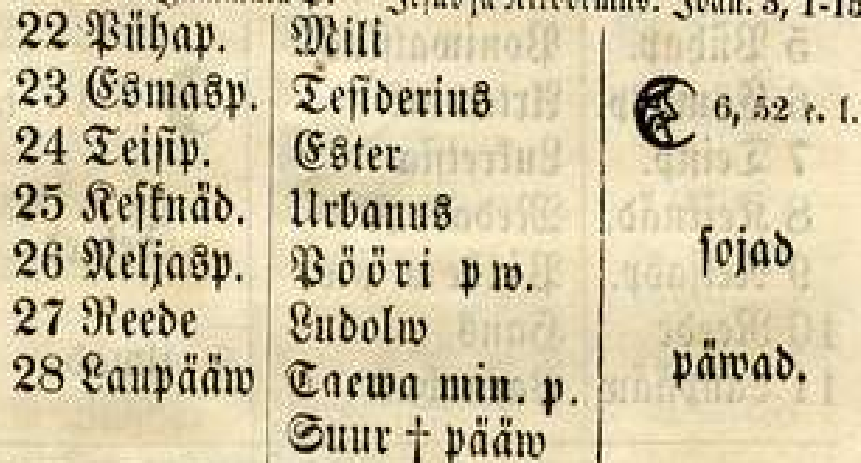 Joan. 3, 1-15
22 Pühap. Mili
23 Esmasp. Tesiderius 6, 52 e. l.
24 Teisip. Ester
25 Keſknäd. Urbanus
26 Neljasp. Pööri pw. sojad
27 Reede Ludolw
28 Laupääw Taewa min. p. päwad.
Suur † pääw